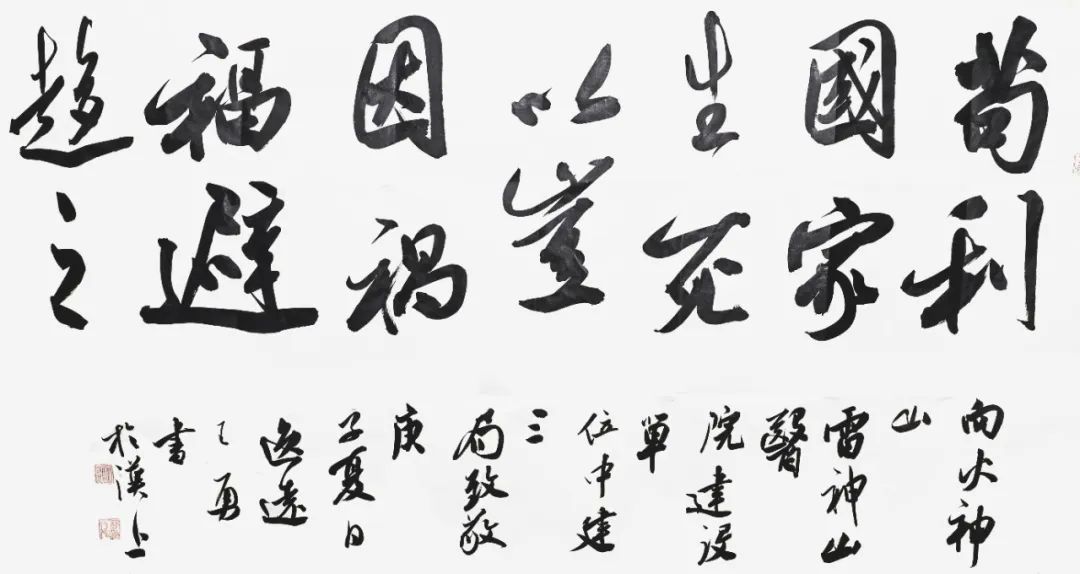 苟利
國家
生死
以豈
因禍
福避
趨之
向火神
山
雷神山
醫
院建設
單
位中建
三
局致敬
庚
子夏日
逸遠
王勇
書
於漢上